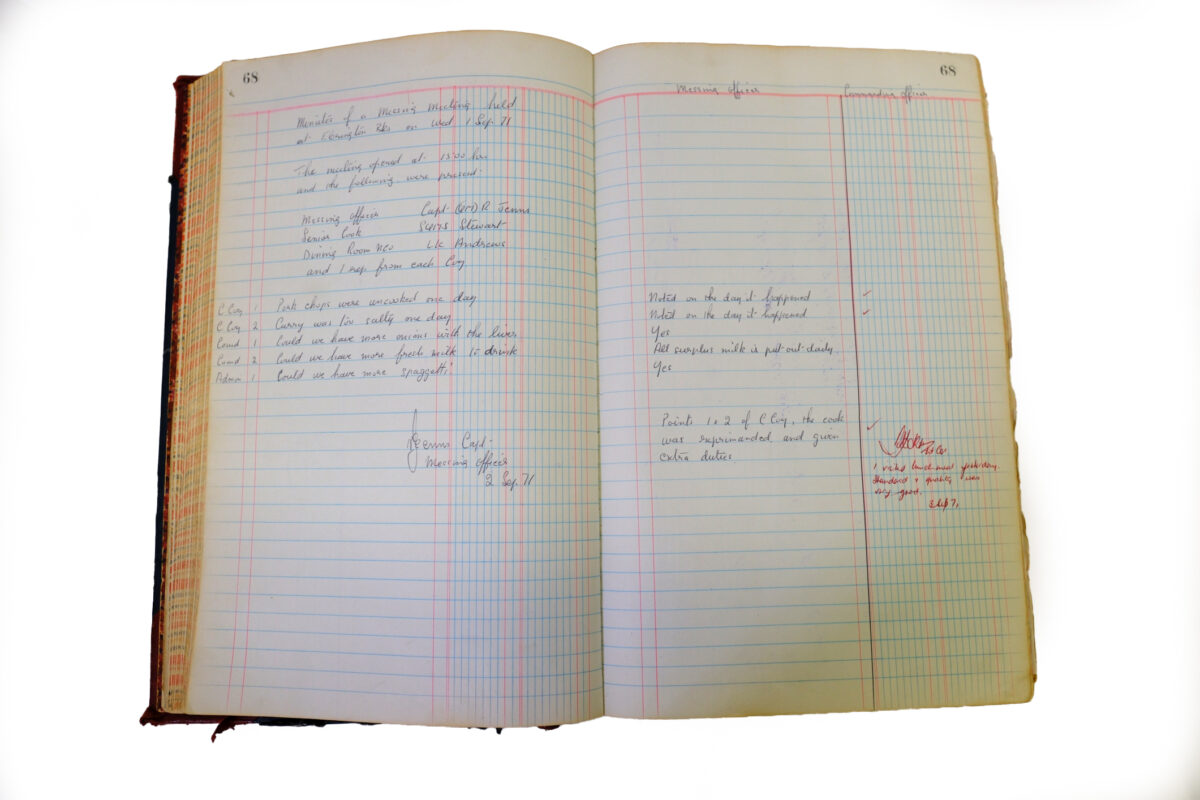 68
Minutes of a Messing Meeting held
at Ebrington Bks on Wed 1 Sep 71
The meeting opened at 1500 hrs
and the following were present.
Messing officer Capt (QM) R Jenns
Senior Cook Stewart
Dining Room NCO Andrews
and 1 rep from each Coy
C Coy 1 Pork chops were uncooked one day
C Coy 2 Curry was too salty one day
Comd 1 Could we have more onions with the liver
Comd 2 Could we have more fresh milk to drink
Admin 1 Could we have more spaggetti
Jenns Capt
Messing Officer
2 Sep 71
68
Messing officer Commanding officer
Noted on the day it happened
Noted on the day it happened
Yes
All surplus milk is put out daily.
Yes
Points 1 & 2 of C Coy, the cook
was reprimanded and given
extra duties.
I visited lunch meal yesterday.
Standard & quality was
very good.
Sep 71